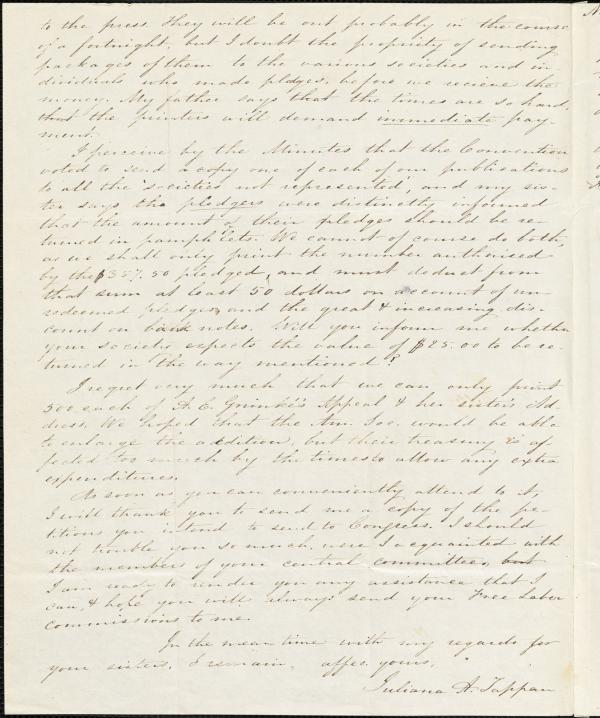 to the press. They will be out probably in the course
of a fortnight, but I doubt the propriety of sending
packages of them to the various societies and in-
dividuals who made pledges, before we recieve the
money. My father says that the times are so hard,
that the printers will demand immediate pay-
ment.
I perceive by the Minutes that the Convention
voted to send a copy one of each of our publications
to all the societies not represented, and my sis-
ter says the pledgers were distinctly informed
that the amount of their pledges should be re-
turned in pamphlets. We cannot of course do both,
as we shall only print the number authorised
by the $357.50 pledged, and must deduct from
that sum at least 50 dollars on account of un-
redeemed pledges, and the great & increasing dis-
count on bank notes. Will you inform me whether
your society expects the value of $25.00 to be re-
turned in the way mentioned?
I regret very much that we can only print
500 each of A. E. Grimké's Appeal & her sister's Ad-
dress. We hoped that the Am. Soc. would be able
to enlarge the addition, but their treasury is af-
fected too much by the times to allow any extra
expenditures.
As soon as you can conveniently attend to it,
I will thank you to send me a copy of the pe-
titions you intend to send to Congress. I should
not trouble you so much, were I acquainted with
the members of your central committee, but
I am ready to render you any assistance that I
can, & hope you will always send your Free Labor
commissions to me.
In the mean time with my regards for
your sisters, I remain, affec. yours,
Juliana A. Tappan